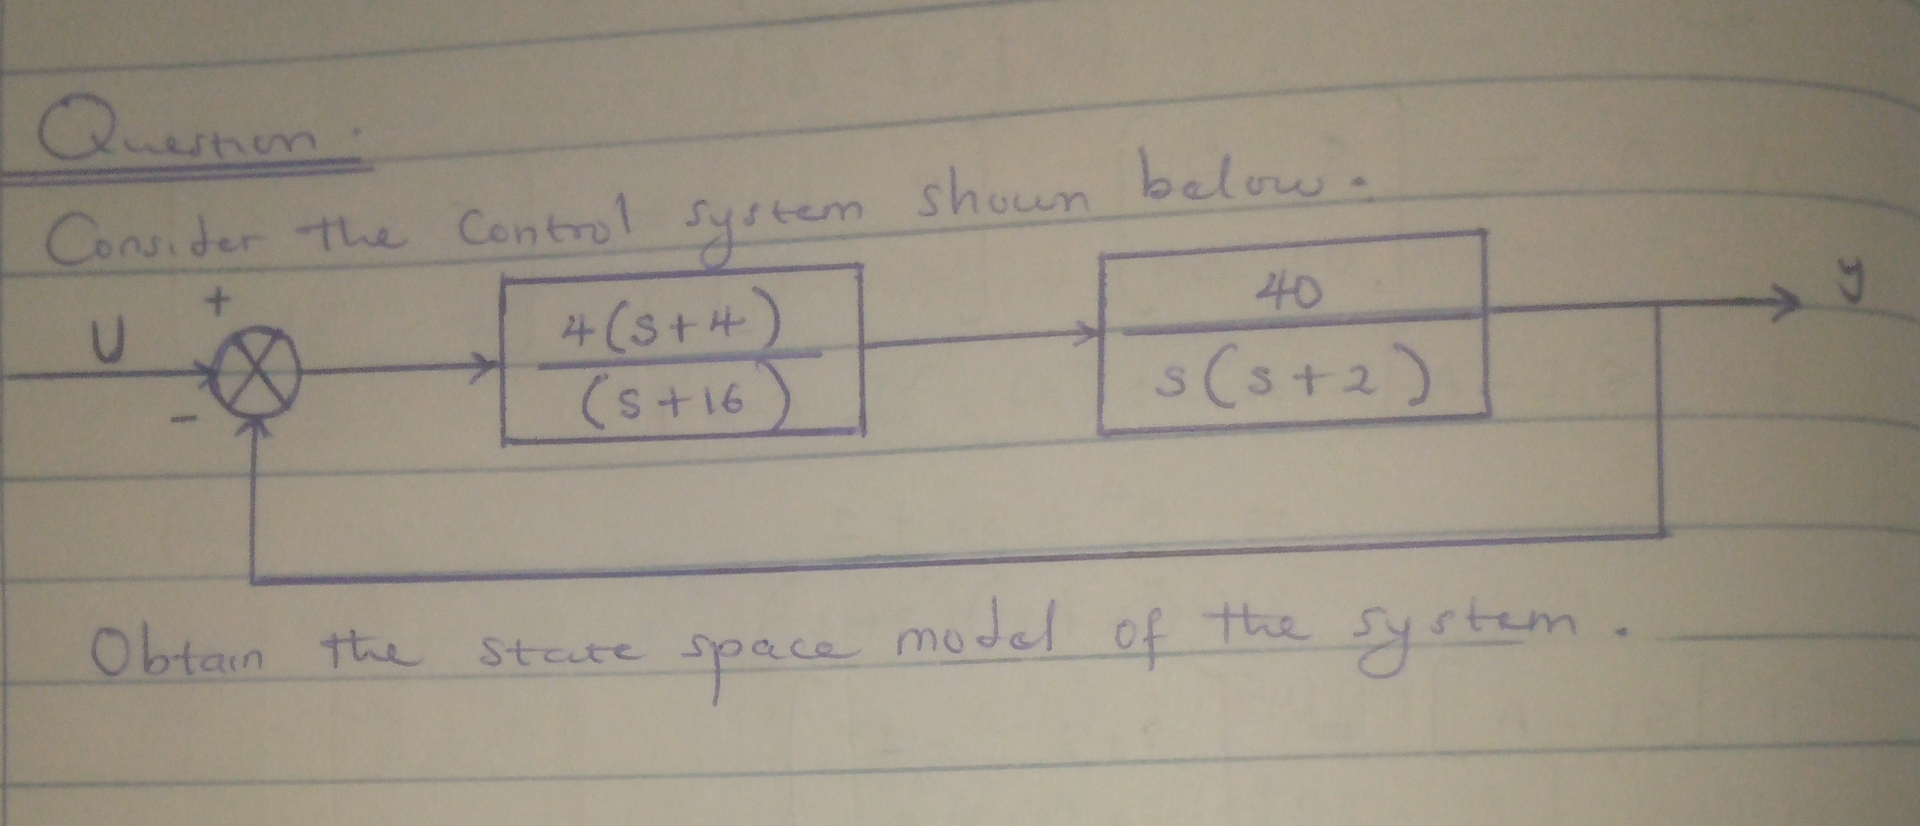 Question.
Consider the Control system shown below.
U + - 4(s+4) / (s+16) 40 / s(s+2) y
Obtain the state space model of the system.